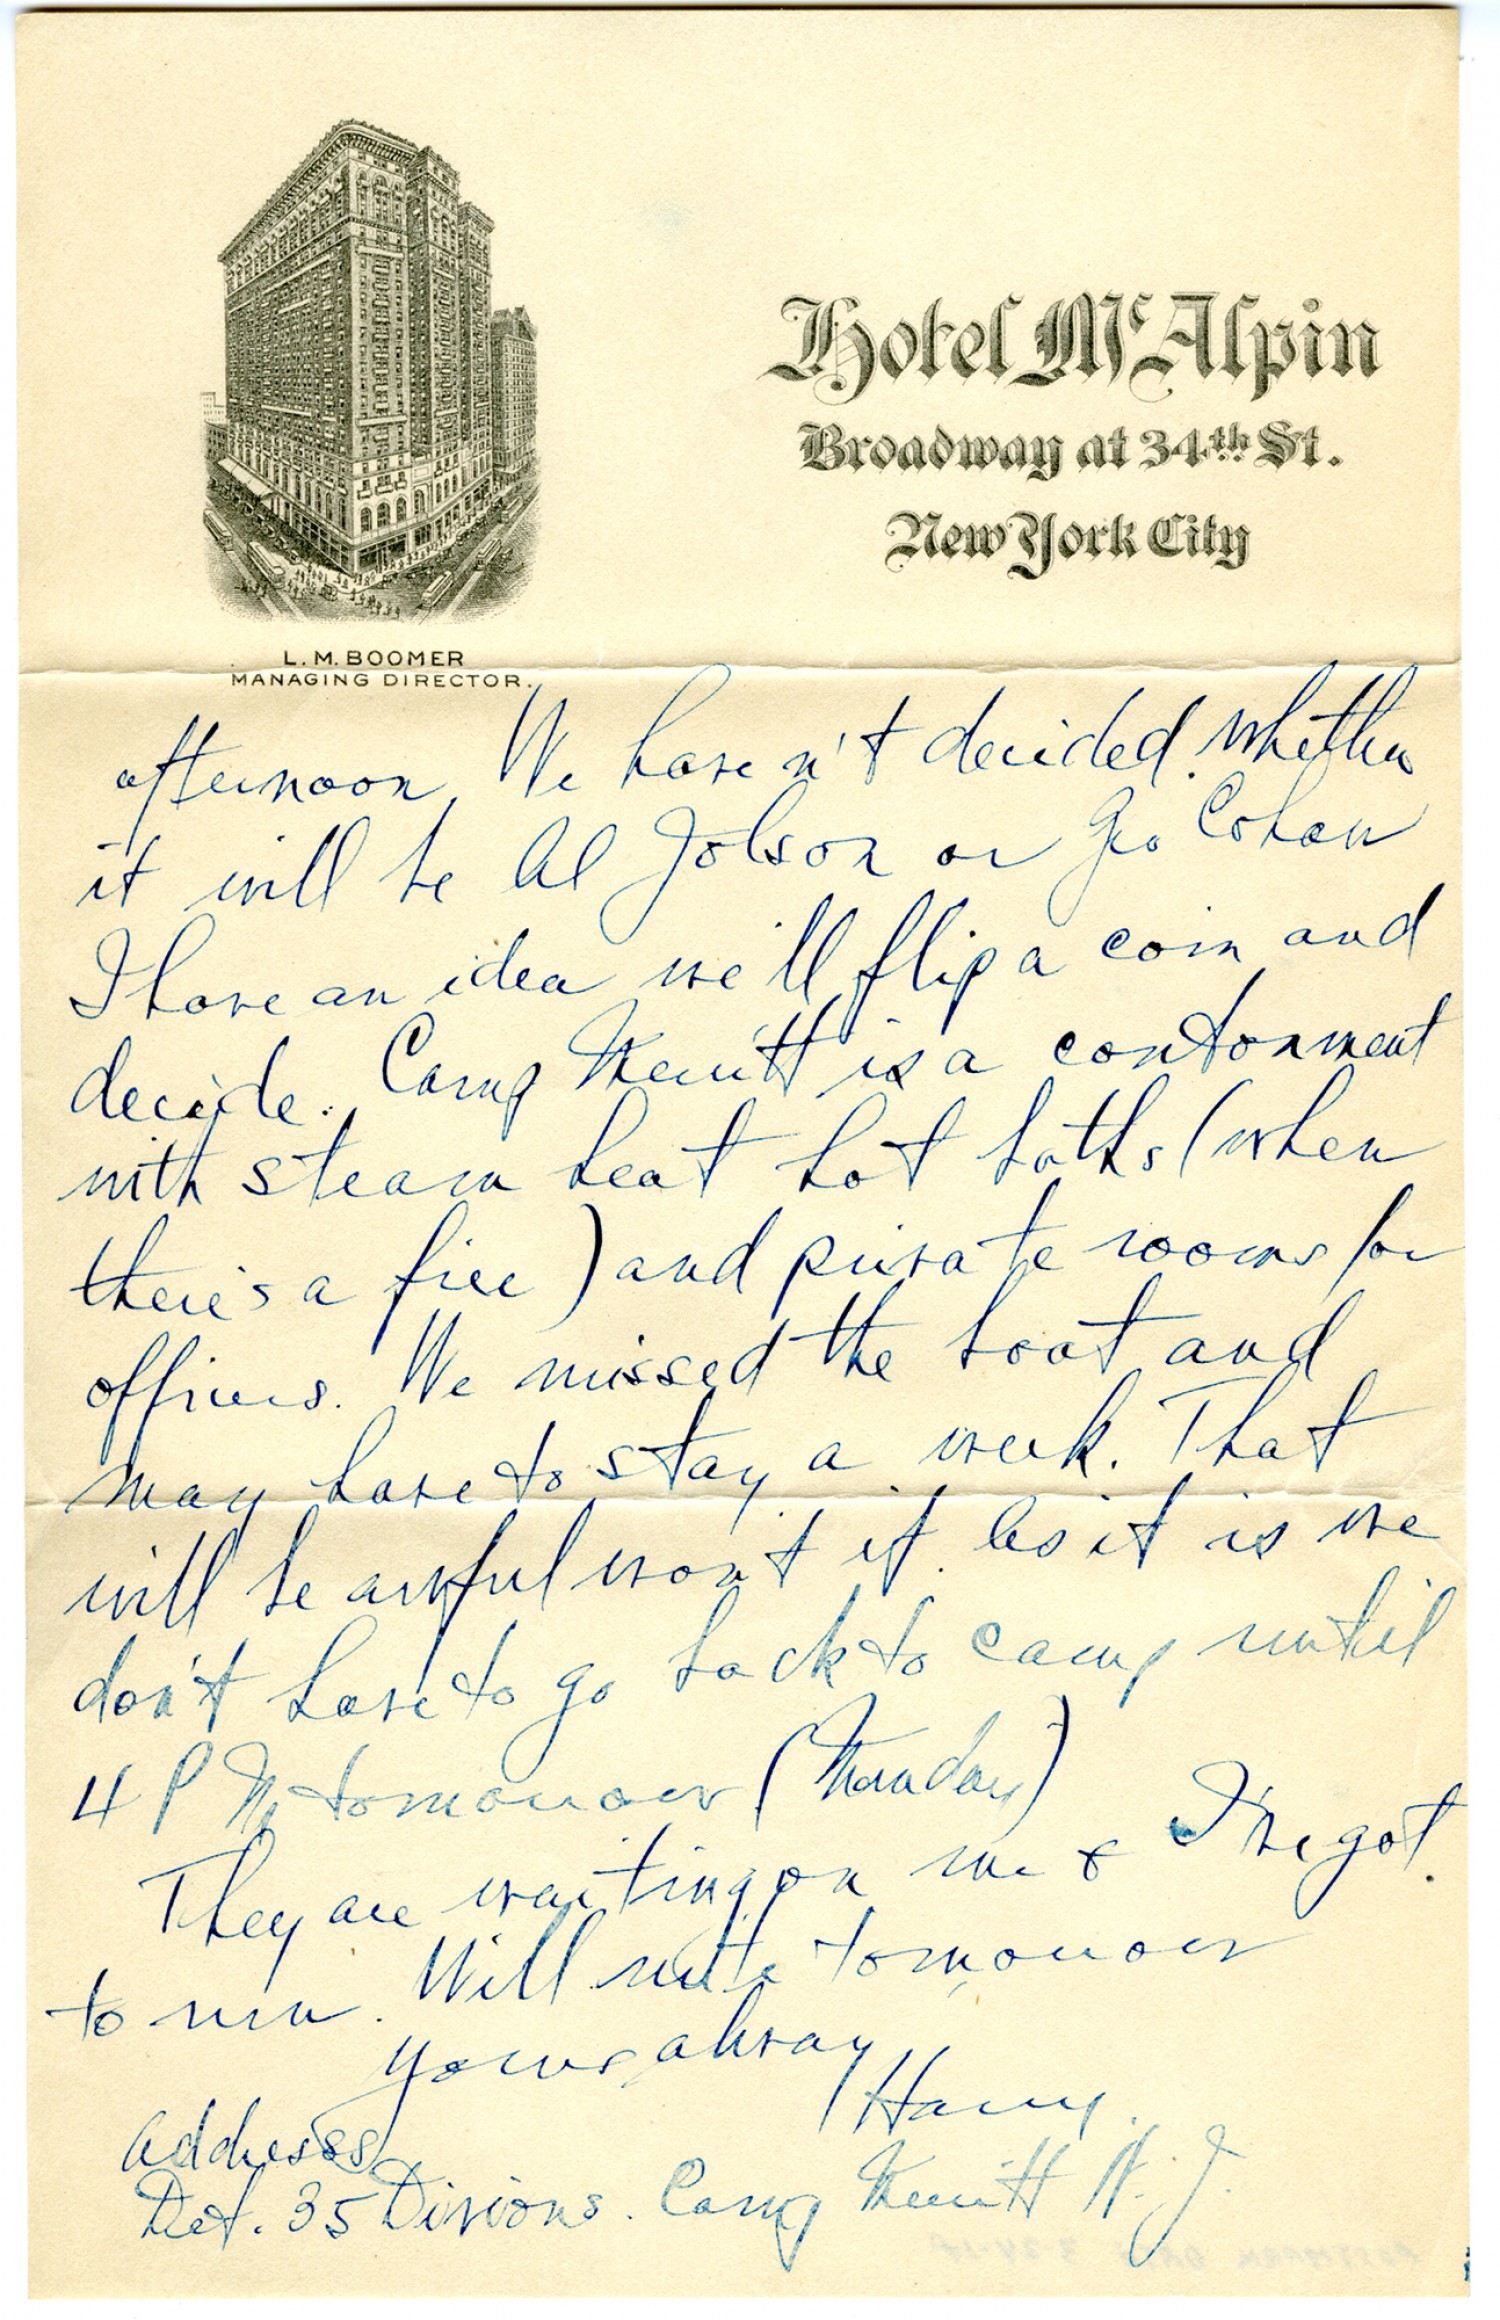 Hotel McAlpin
Broadway at 34th St.
New York City
L. M. BOOMER
MANAGING DIRECTOR.
afternoon. We haven't decided whether
it will be Al Jolson or Geo Cohan
I have an idea we'll flip a coin and
decide. Camp Merritt is a contonment
with steam heat hot baths (when
there's a fire) and private rooms for
officers. We missed the boat and
may have to stay a week. That
will be awful wont it. As it is we
don't have to go back to camp until
4 PM tomorrow (Monday)
They are waiting on me & I've got
to run. Will write tomorrow
Yours always
Harry.
Address
Det. 35 Divions. Camp Merritt N.J.